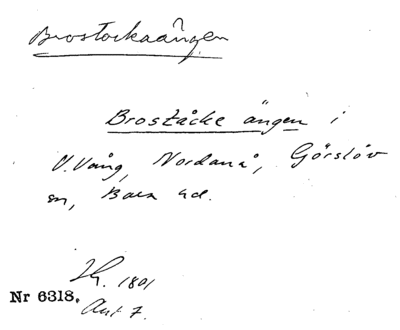 Brostockaängen
Brostäcke ängen i
V. Vång, Nordanå, Görslöv
sn, Bara hd.
1801
Nr 6318. Akt 7.